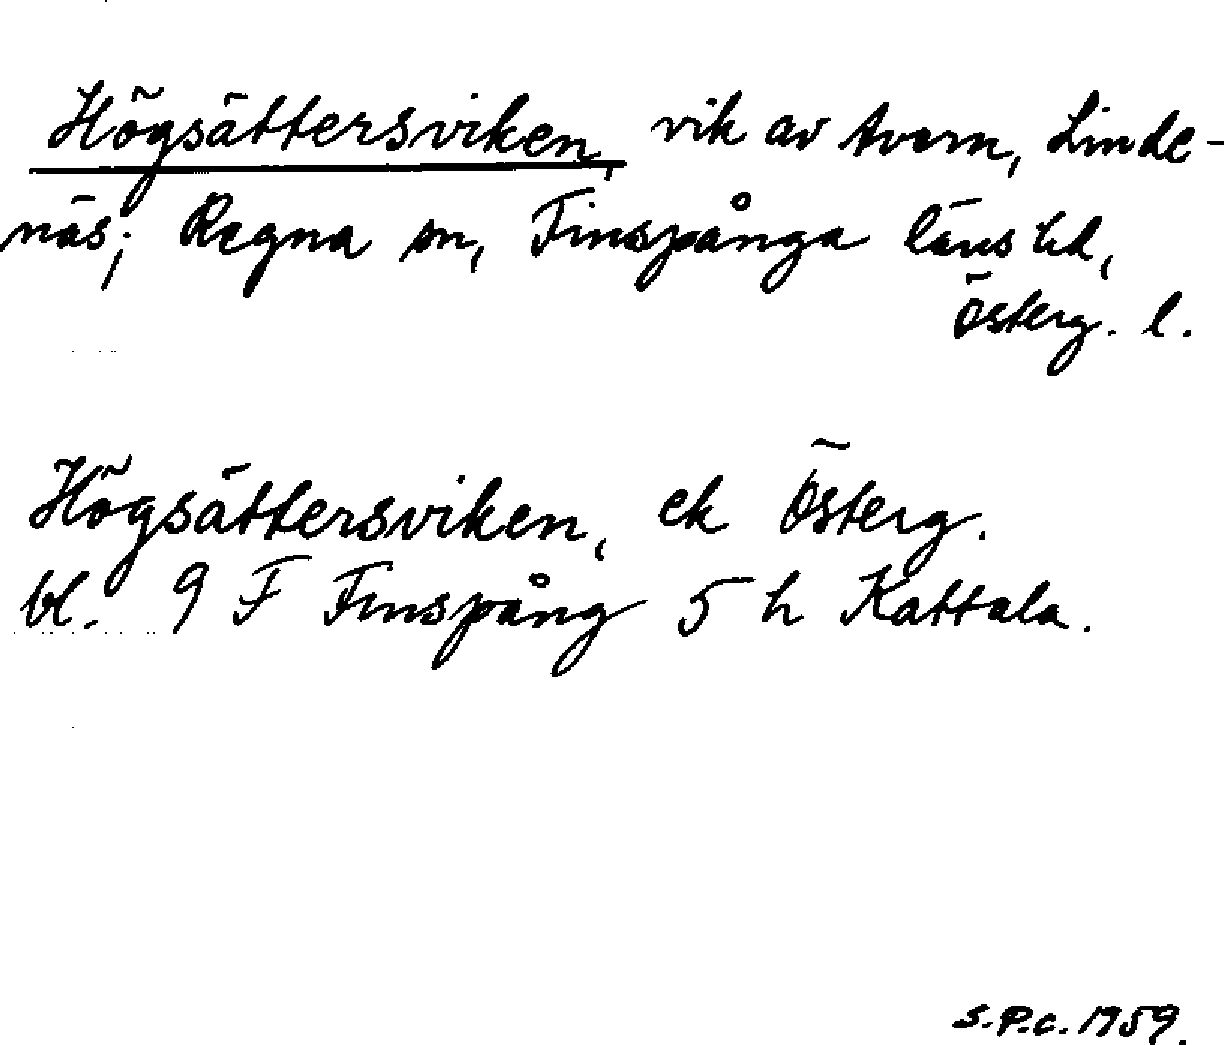 Högsättersviken, vik av Avern, Linde-
näs; Regna sn, Finspånga läns hd,
Österg. l.
Högsättersviken, ek Österg.
bl. 9 F Finspång 5 h Kattala.
S.P.C. 1959.